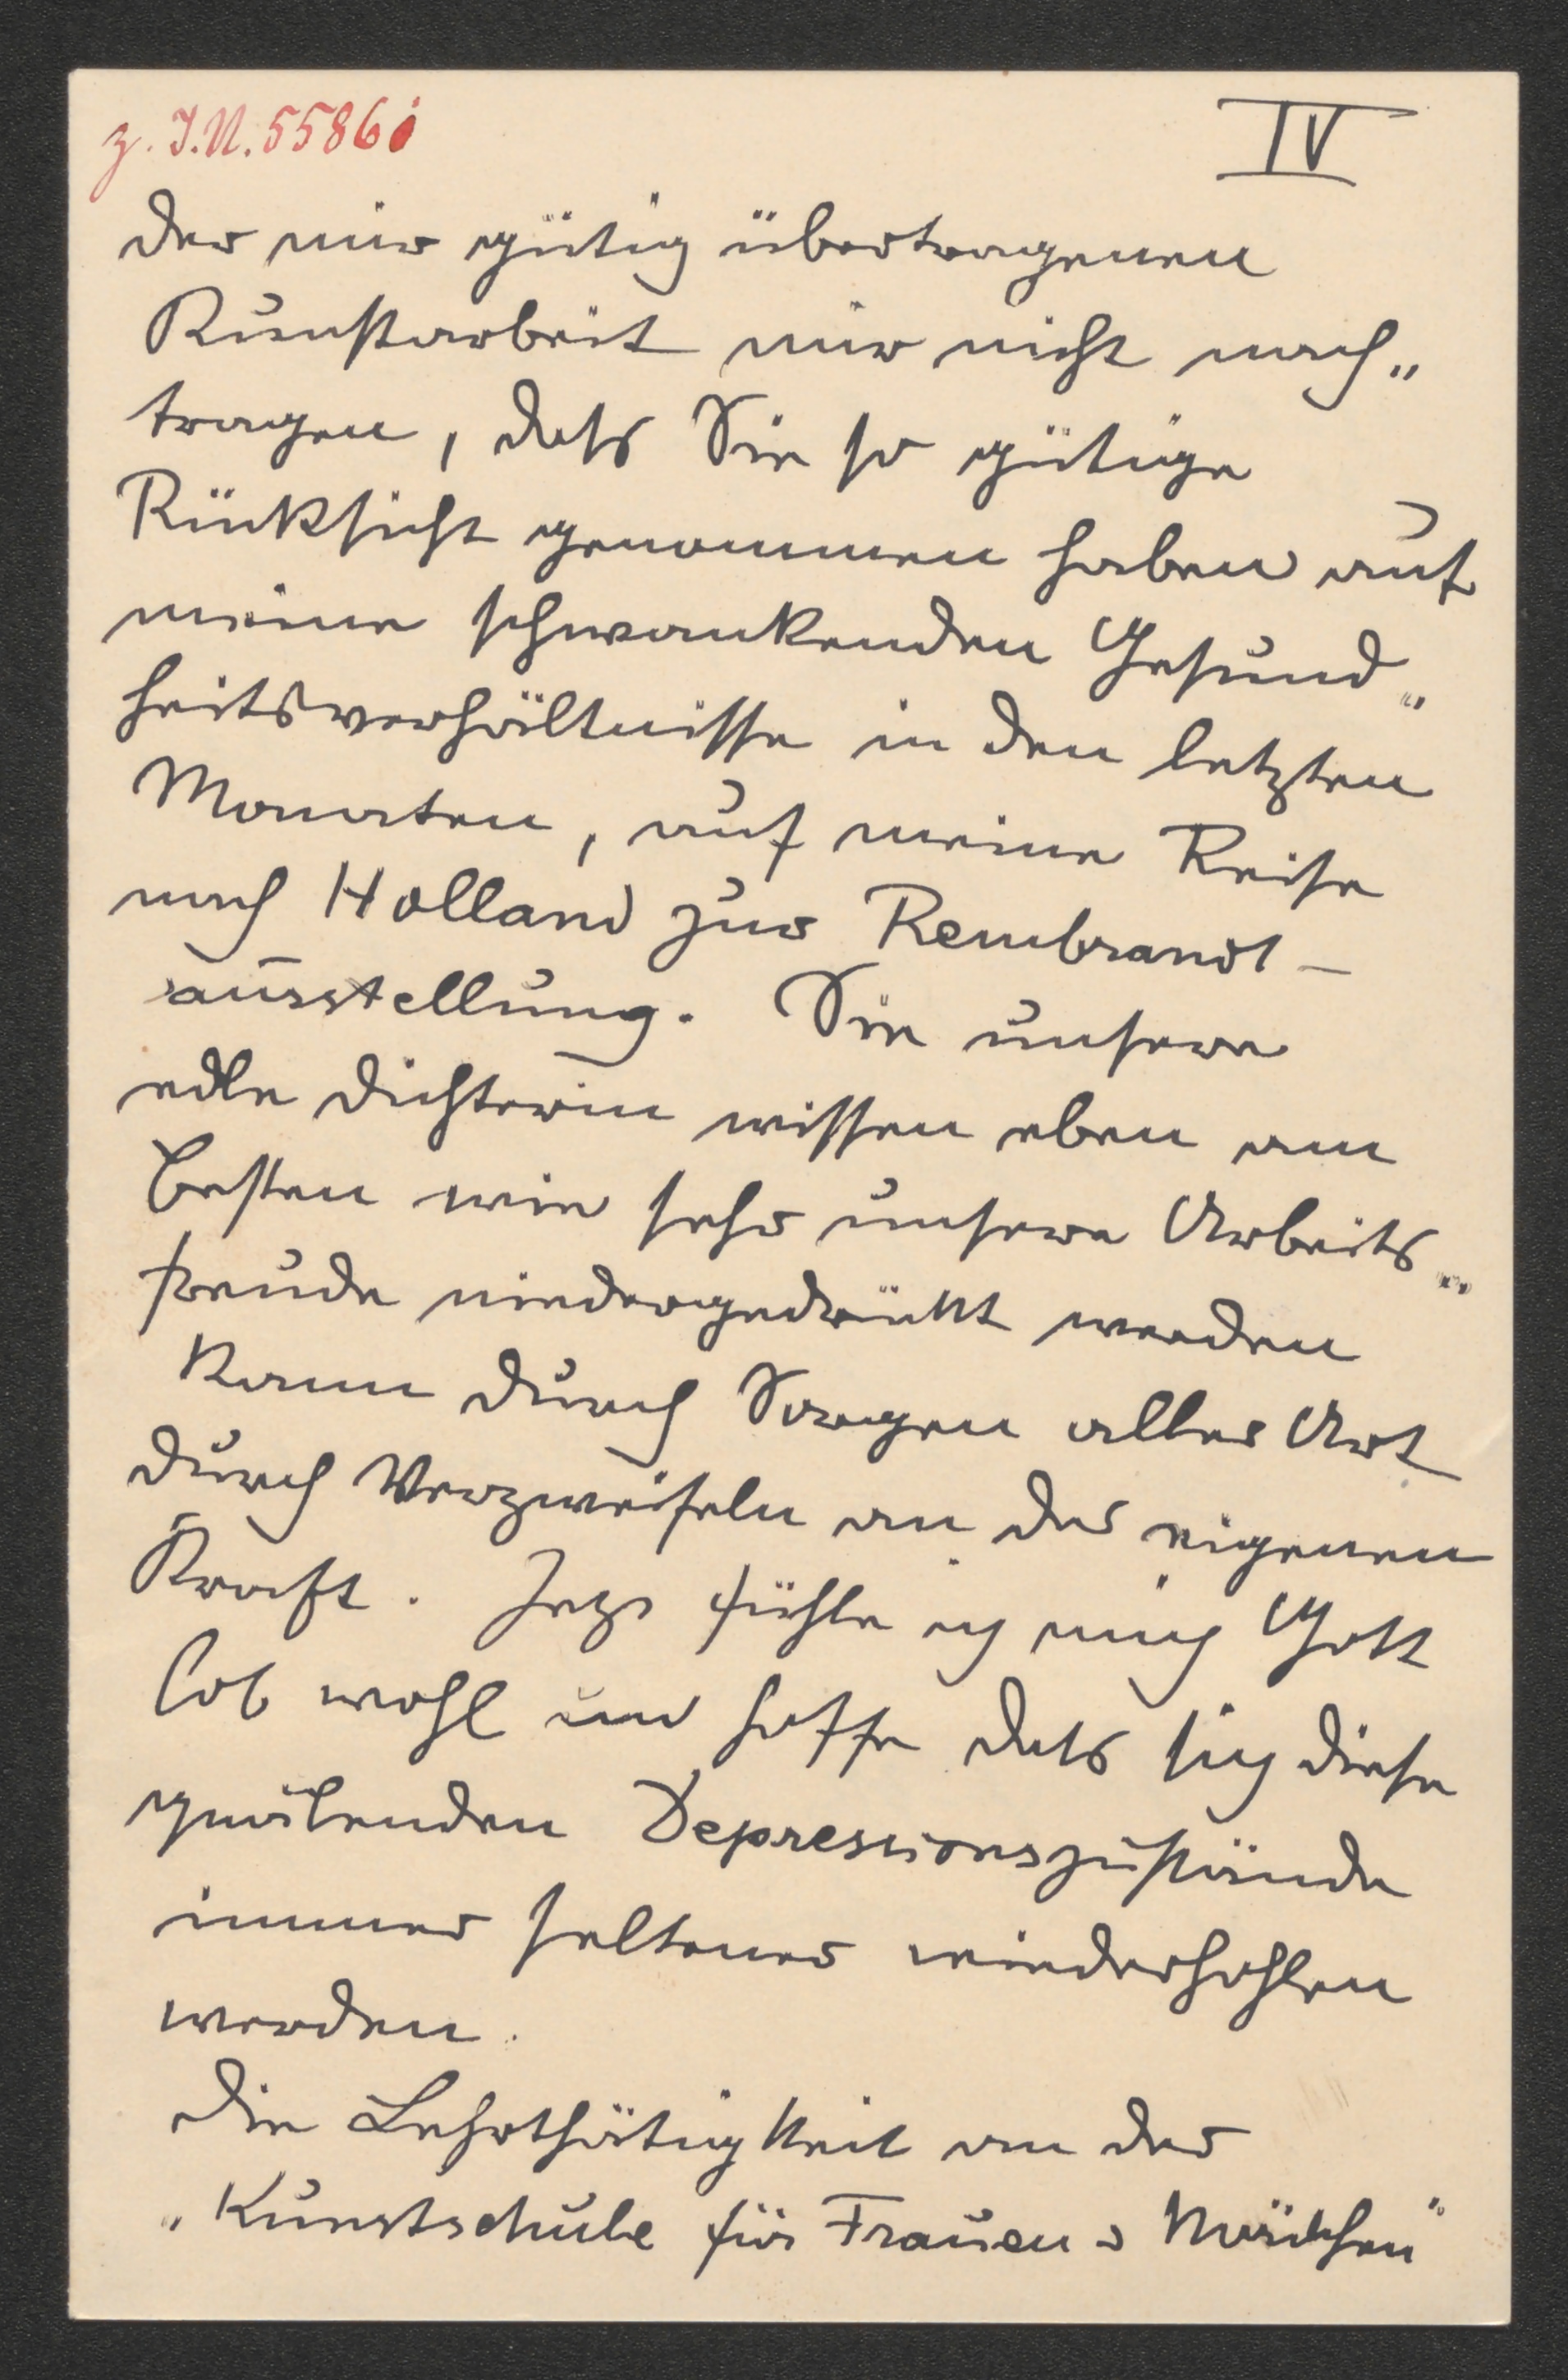 z. I.N. 55860
IV
der mir gütig übertragenen
Kunstarbeit mir nicht nach„
tragen, daß Sie so gütige
Rücksicht genommen haben auf
meine schwankenden Gesund„
heitsverhältnisse in den letzten
Monaten, auf meine Reise
nach Holland zur Rembrandt-
ausstellung. Sie unsere
edle Dichterin wissen eben am
besten wie sehr unsere Arbeits„
freude niedergedrückt werden
kann durch Sorgen aller Art
durch Verzweifeln an der eigenen
Kraft. Jetzt fühle ich mich Gott
lob wohl und hoffe daß sich diese
quälenden Depressionszustände
immer seltener wiederhohlen
werden.
Die Lehrthätigkeit an der
„Kunstschule für Frauen u Mädchen"